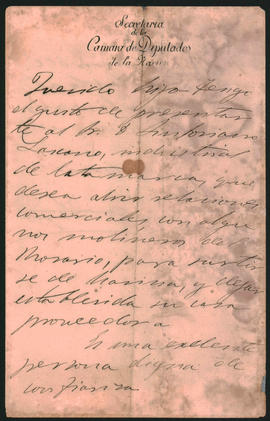 Secretaria
de la
Camara de Diputados
de la Nacion
Querido hijo tengo
el gusto de presentar
te al Sr. D
Lascano, industrial
de Catamarca, que
desea abrir relaciones
comerciales con algu
nos molineros del
Rosario, para surtir
se de harina, y dejar
establecida su casa
proveedora
Es una excelente
persona digna de
confianza